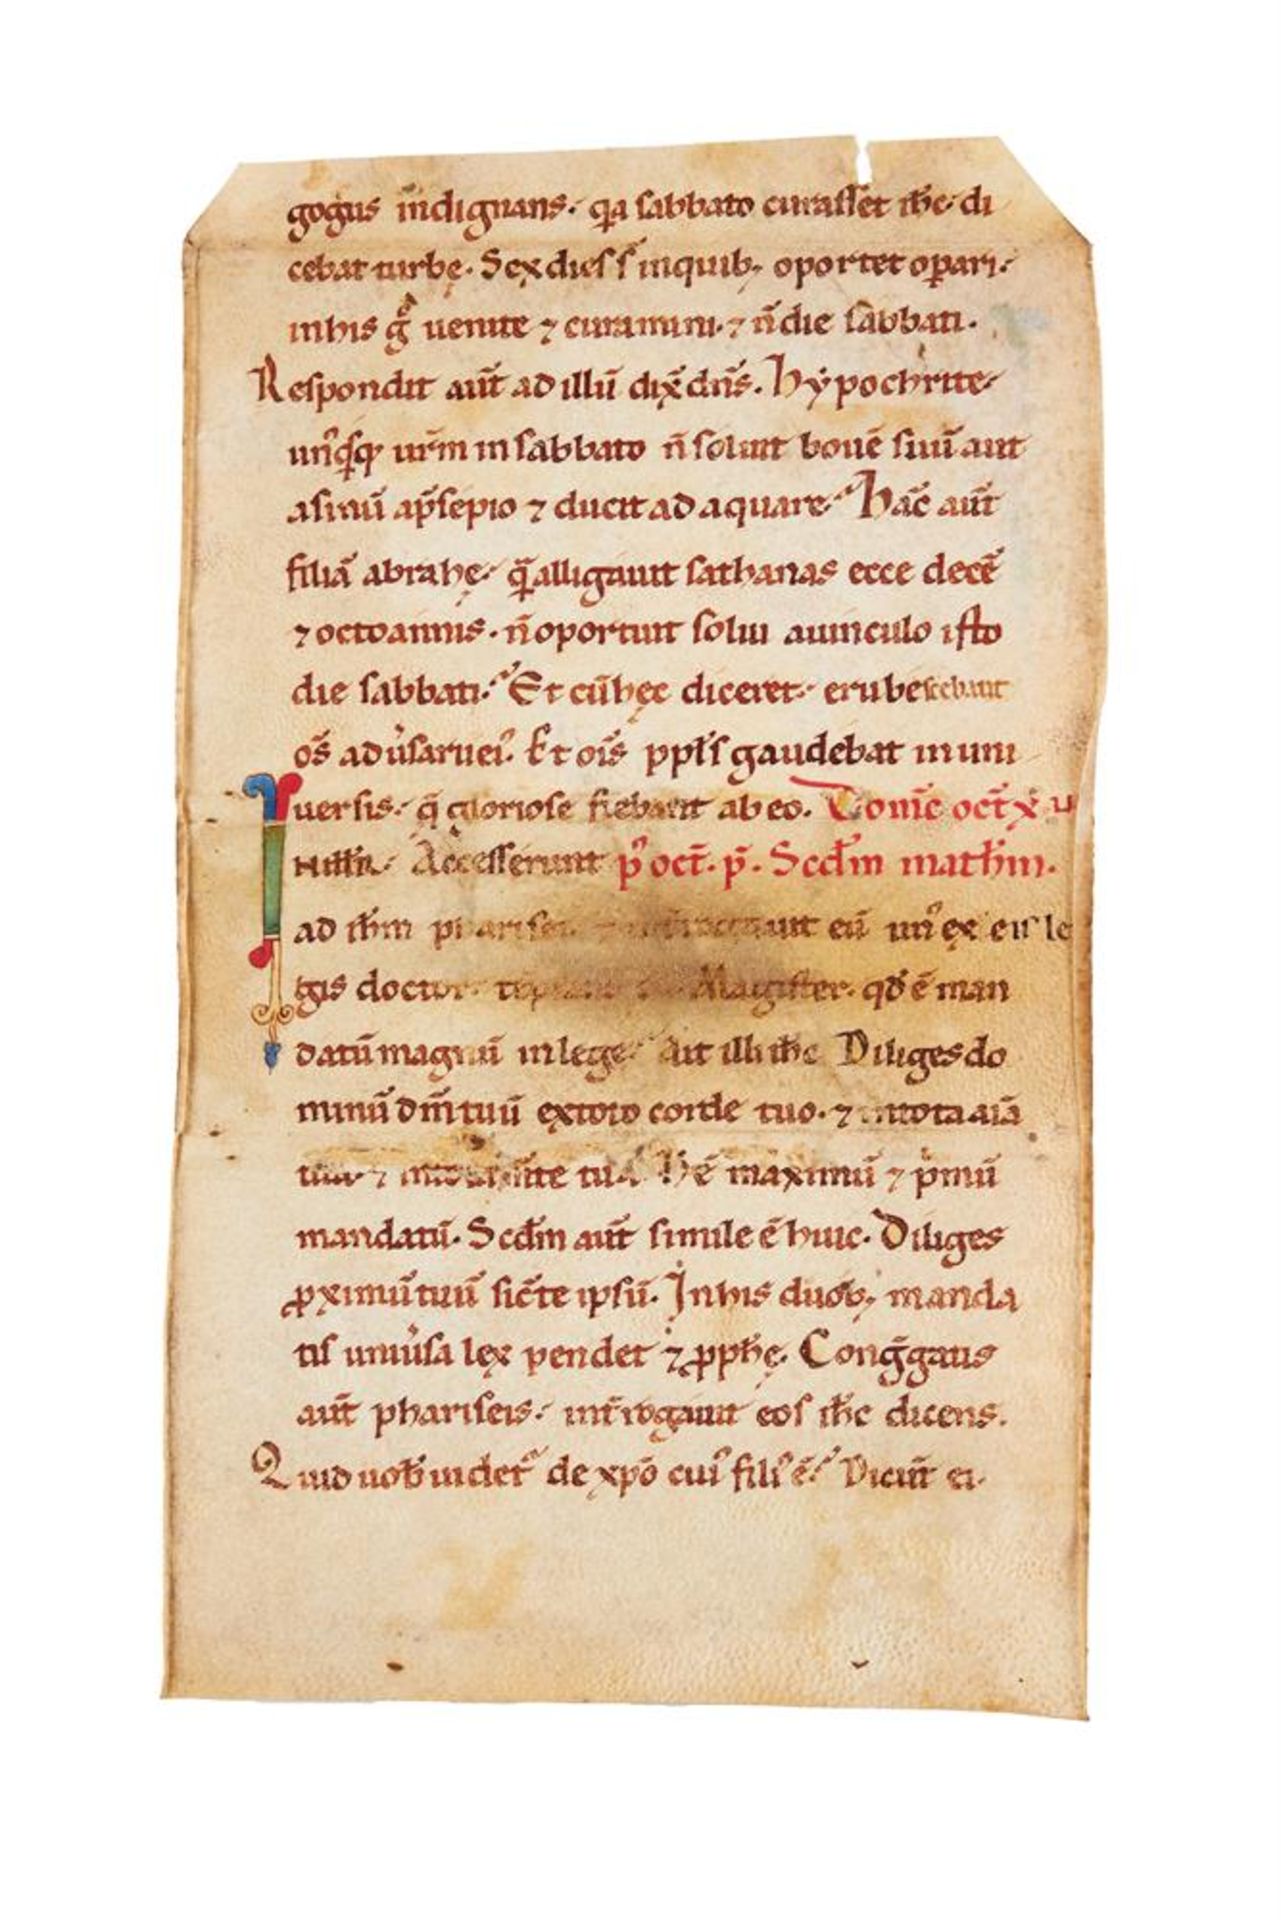 gogus indignans. qa sabbato curasset ihc. di
cebat turbę. Sex dies s̄ inquib; oportet opari.
in his g̊ uenite ⁊ curamini. ⁊ n̄ die sabbati.
Respondit aut̄ ad illū dix̄ dn̄s. hypochrite.
un᷒q̇sq urm̄ in sabbato n̄ soluit bouē suū aut
asinū ap̄sepio ⁊ ducit ad aquare. hāc aut̄
filiā abrahę. quā alligauit sathanas ecce decē
⁊ octo annis. n̄ oportuit solui auinculo isto
die sabbati. Et cū hęc diceret. erubescebant
om̄s aduersarii ei᷒. Et om̄is ppl̄s gaudebat in uni
uersis. q̄ gloriose fiebant ab eo. Domīc oct̄ x u
In illr̄. Accesserunt p᷒ oct̄. p̄. Scd̄m math̄m.
ad ih̄m pharisei eū un᷒ ex eis le
gis doctor. Magister. qd̄ ē man
datū magnū in lege. Ait illi ih̄c Diliges do
minū dm̄ tuū ex toto corde tuo. ⁊ in tota aīa
tua. ⁊ in tota m̄te tua. Hē maximū ⁊ p̄mū
mandatū. Scd̄m aut̄ simile ē huic. Diliges
ꝓximū tuū sic̄ te ipsū. In his duob; manda
tis uniu̇sa lex pendet ⁊ ꝓph̄ę. Cong̃gatis
aut̄ phariseis. int̄rogauit eos ih̄c dicens.
Quid uob̄ uidet᷑ de xp̄o cui᷒ fili᷒ ē. Dicūt ei.